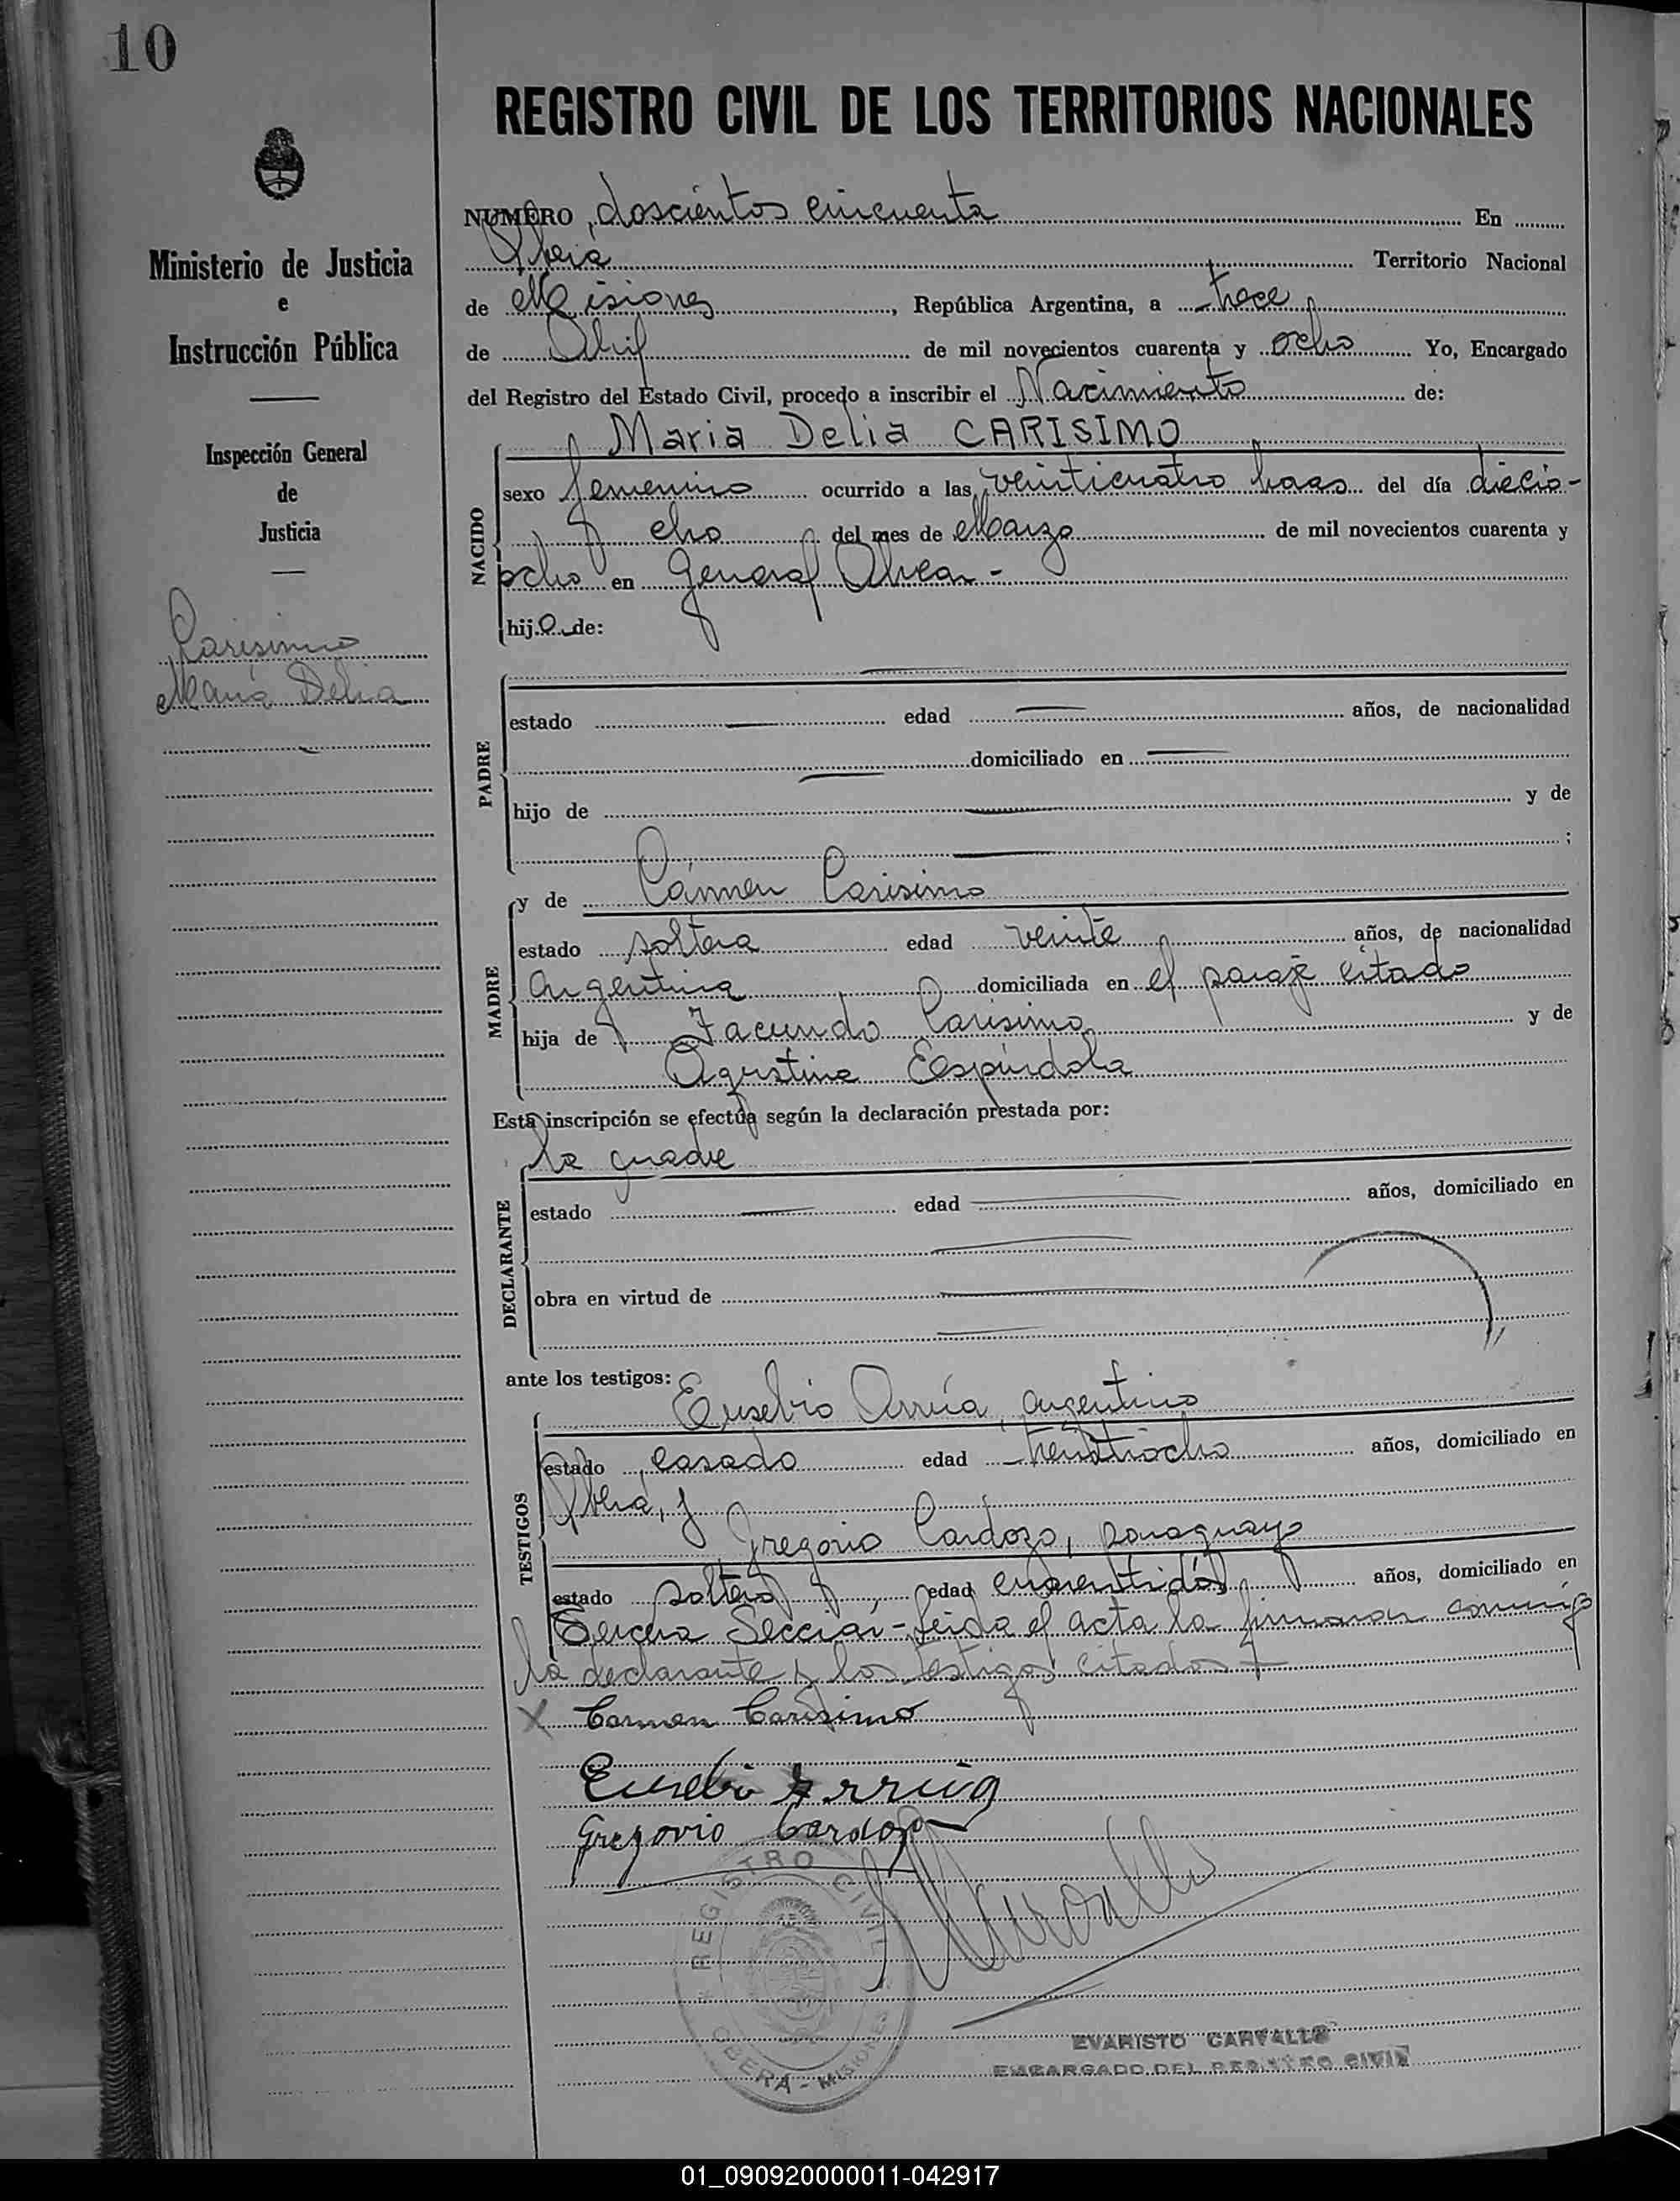 10
REGISTRO CIVIL DE LOS TERRITORIOS NACIONALES
Ministerio de Justicia
e
Instrucción Pública
Inspección General
de
Justicia
Carisimo
Maria Delia
NUMERO doscientos cincuenta En
Oberá Territorio Nacional
de Misiones, República Argentina, a trece
de Abril de mil novecientos cuarenta y ocho Yo, Encargado
del Registro del Estado Civil, procedo a inscribir el Nacimiento de:
Maria Delia CARISIMO
NACIDO
sexo femenino ocurrido a las veinticuatro horas del día diecio-
cho del mes de Marzo de mil novecientos cuarenta y
ocho en General Alvear-
hija de:
PADRE
estado edad años, de nacionalidad
domiciliado en
hijo de y de
;
MADRE
y de Cármen Carisimo
estado soltera edad veinte años, de nacionalidad
argentina domiciliada en el paraje citado
hija de Facundo Carisimo y de
Agustina Espíndola
Esta inscripción se efectúa según la declaración prestada por:
la madre
DECLARANTE
estado edad años, domiciliado en
obra en virtud de
ante los testigos:
TESTIGOS
Eusebio Arrúa, argentino
estado casado edad treintiocho años, domiciliado en
Oberá, y
Gregorio Cardozo, paraguayo
estado soltero, edad cuarentidós años, domiciliado en
Tercera Sección- Leida el acta la firmaron conmigo
la declarante y los testigos citados
X Carmen Carisimo
Eusebio Arrúa
Gregorio Cardozo
REGISTRO CIVIL
OBERÁ - MISIONES
EVARISTO CARVALLO
ENCARGADO DEL REGISTRO CIVIL
01_090920000011-042917